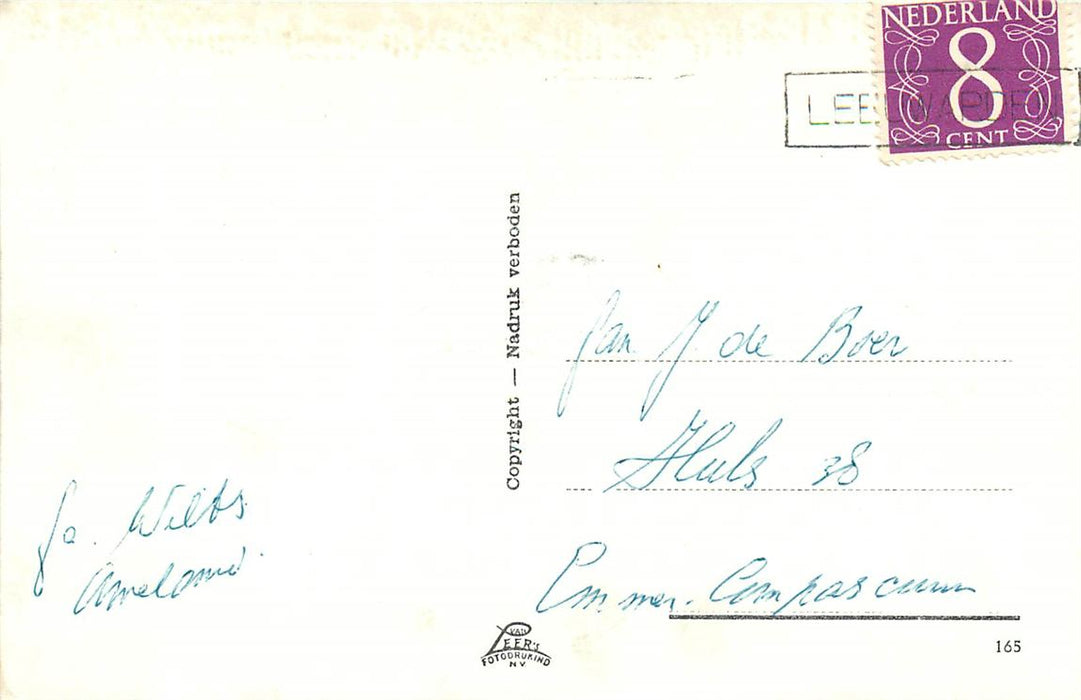 NEDERLAND
8
CENT
LEEUWARDEN
Copyright — Nadruk verboden
Jan J de Boer
Huls 38
Emmer-Compascuum
fa. Wilts
Ameland.
VAN
LEER's
FOTODRUKIND
N.V.
165